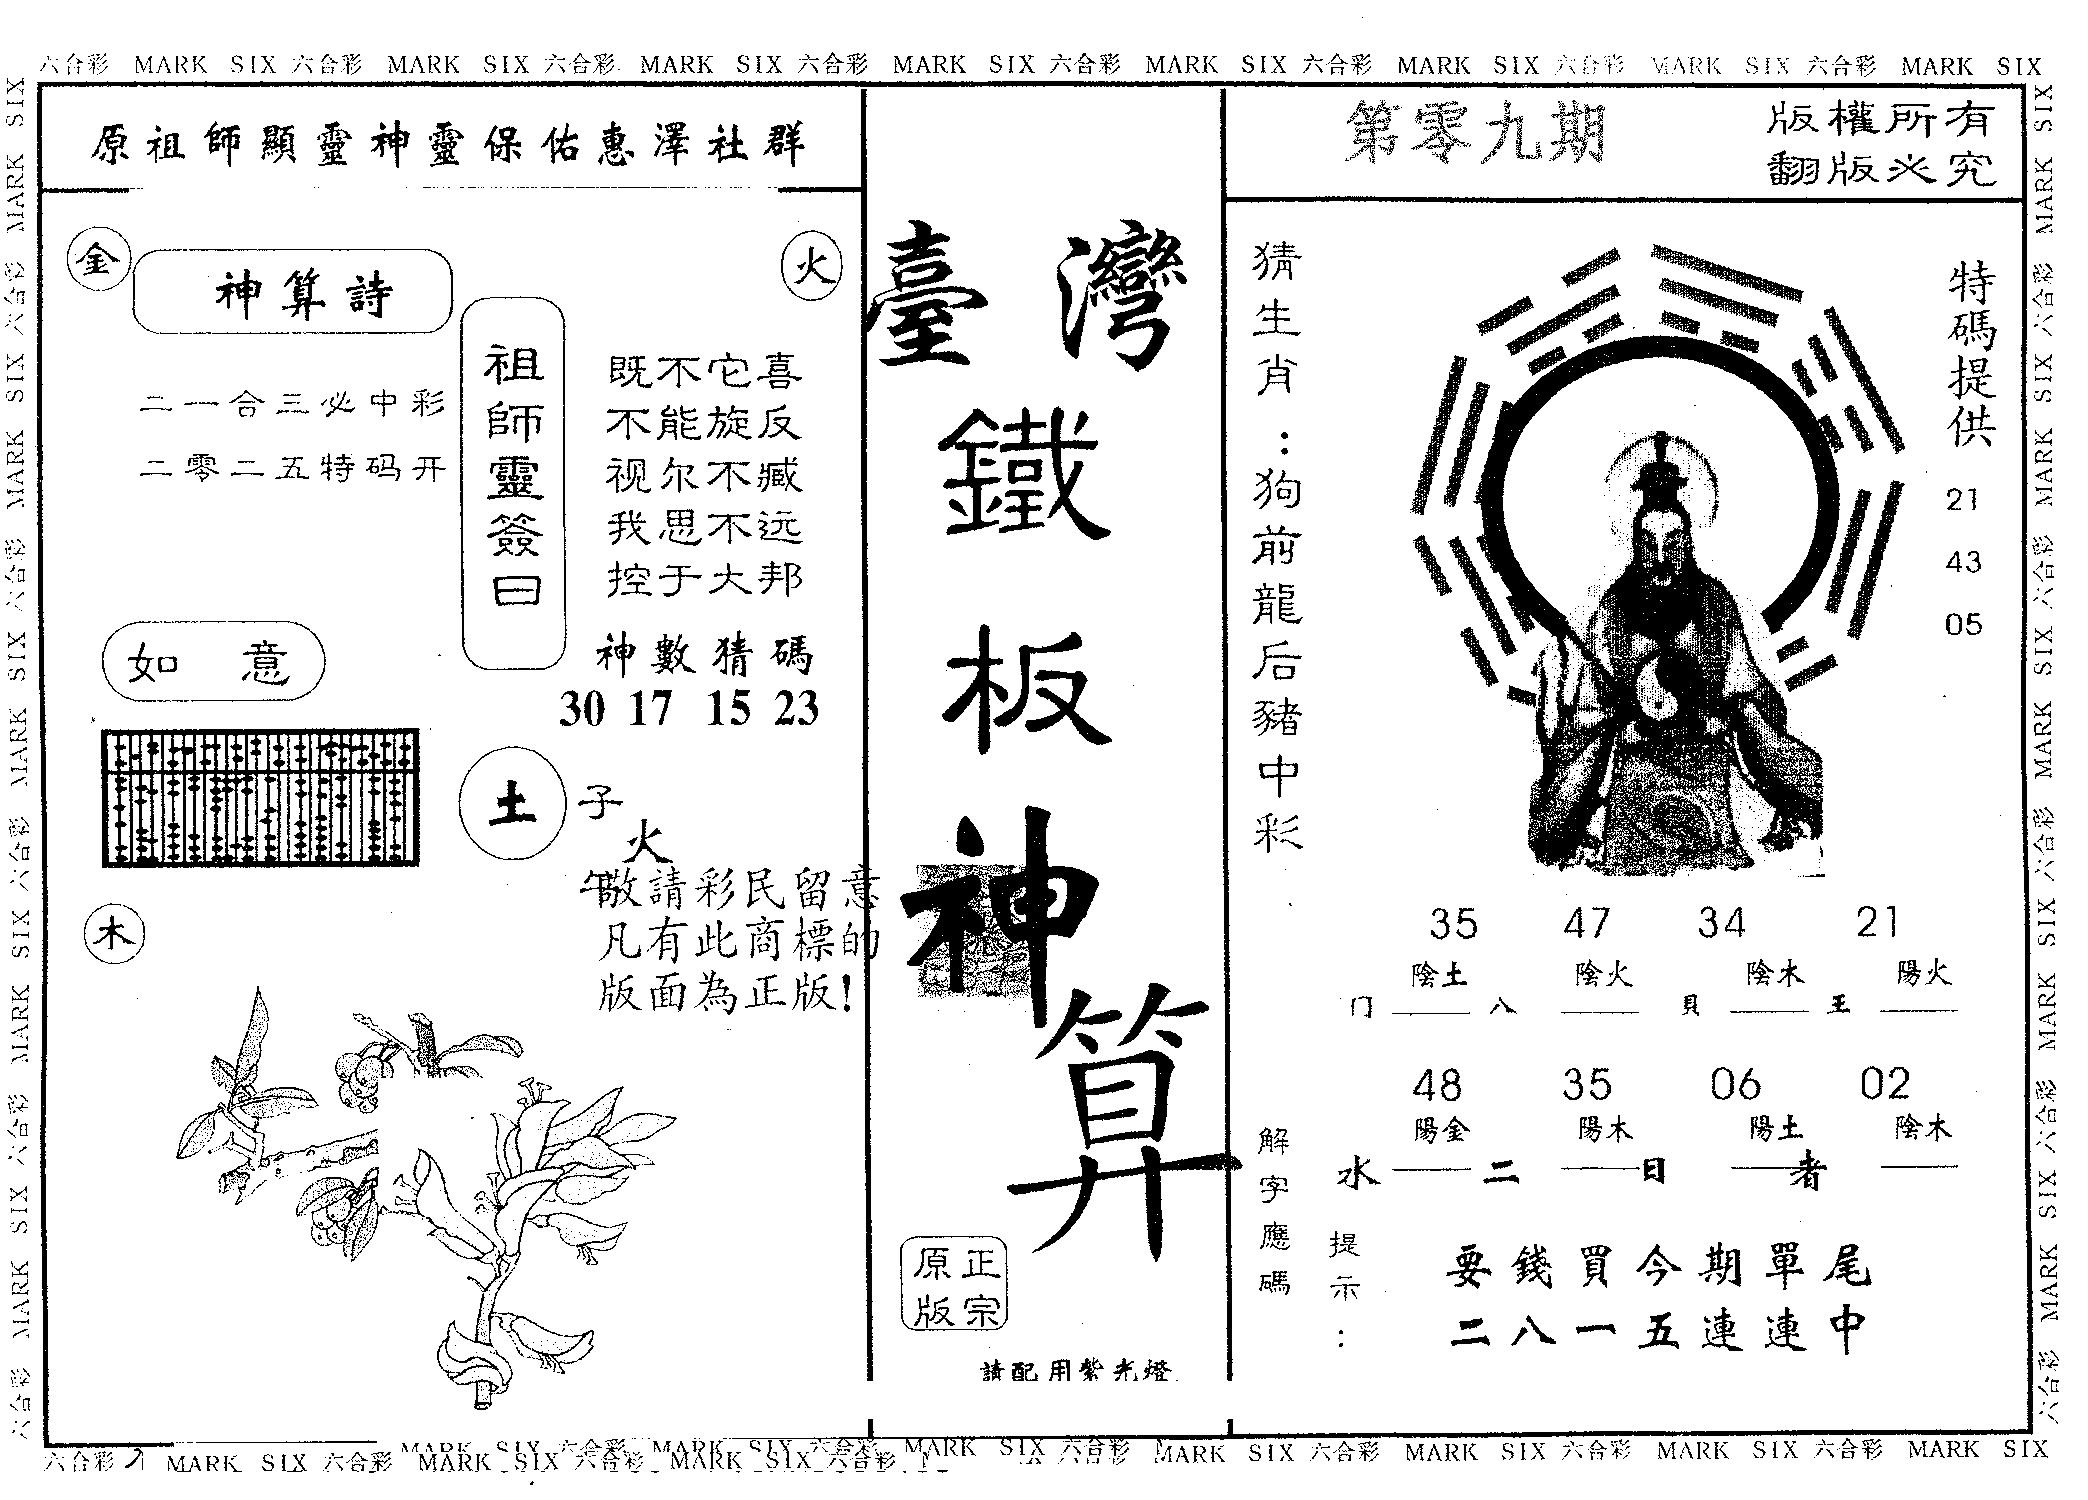 六合彩 MARK SIX 六合彩 MARK SIX 六合彩 MARK SIX 六合彩 MARK SIX 六合彩 MARK SIX 六合彩 MARK SIX 六合彩 MARK SIX 六合彩 MARK SIX
原祖師顯靈神靈保佑惠澤社群
金
神算詩
火
二一合三必中彩
二零二五特码开
祖師靈簽曰
既不它喜
不能旋反
视尔不臧
我思不远
控于大邦
如意
神數猜碼
30 17 15 23
土
子
火
午
敬請彩民留意
凡有此商標的
版面為正版!
木
臺灣
鐵
板
神
算
原正
版宗
請配用紫光燈
第零九期
版權所有
翻版必究
猜生肖:狗前龍后豬中彩
特碼提供
21
43
05
35 47 34 21
陰土 陰火 陰木 陽火
门 八 貝 王
48 35 06 02
陽金 陽木 陽土 陰木
水 二 日 者
解字應碼
提示:
要錢買今期單尾
二八一五連連中
六合彩 MARK SIX 六合彩 MARK SIX 六合彩 MARK SIX 六合彩
MARK SIX 六合彩 MARK SIX 六合彩 MARK SIX 六合彩 MARK SIX 六合彩 MARK SIX 六合彩 MARK SIX 六合彩 MARK SIX